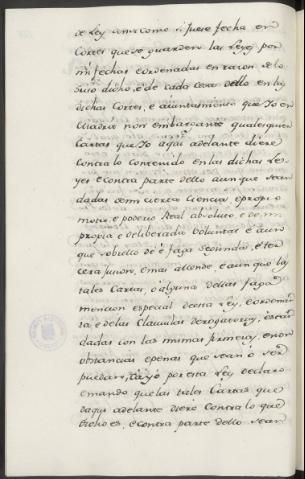 de Ley como si fuere fecha en
Cortes que se guarden las Leyes por
mi fechas e ordenadas en razon de lo
suso dicho, e de cada cosa dello en las
dichas Cortes, e aiuntamiento que Yo en
non embargante qualesquier
Cartas que Yo aqui adelante diere
contra lo contenido en las dichas Le-
yes e contra parte dello aunque sean
dadas de mi cierta ciencia, e propio
motu, e poderio Real absoluto, e de mi
propia e deliberada voluntat, e aun
que sobrello dé e faga segunda, e ter
cera jusion, e mas allende, e aunque las
tales Cartas, o alguna dellas fagan
mencion especial desta Ley, e ordenan
za, e de las Clausulas derogatorias, e sean
dadas con las mismas firmezas, e non
obstancias e penas que sean o ser
puedan, Ca yo por esta Ley declaro
e mando que las tales Cartas que
daqui adelante diero contra lo que
dicho es, e contra parte dello sean